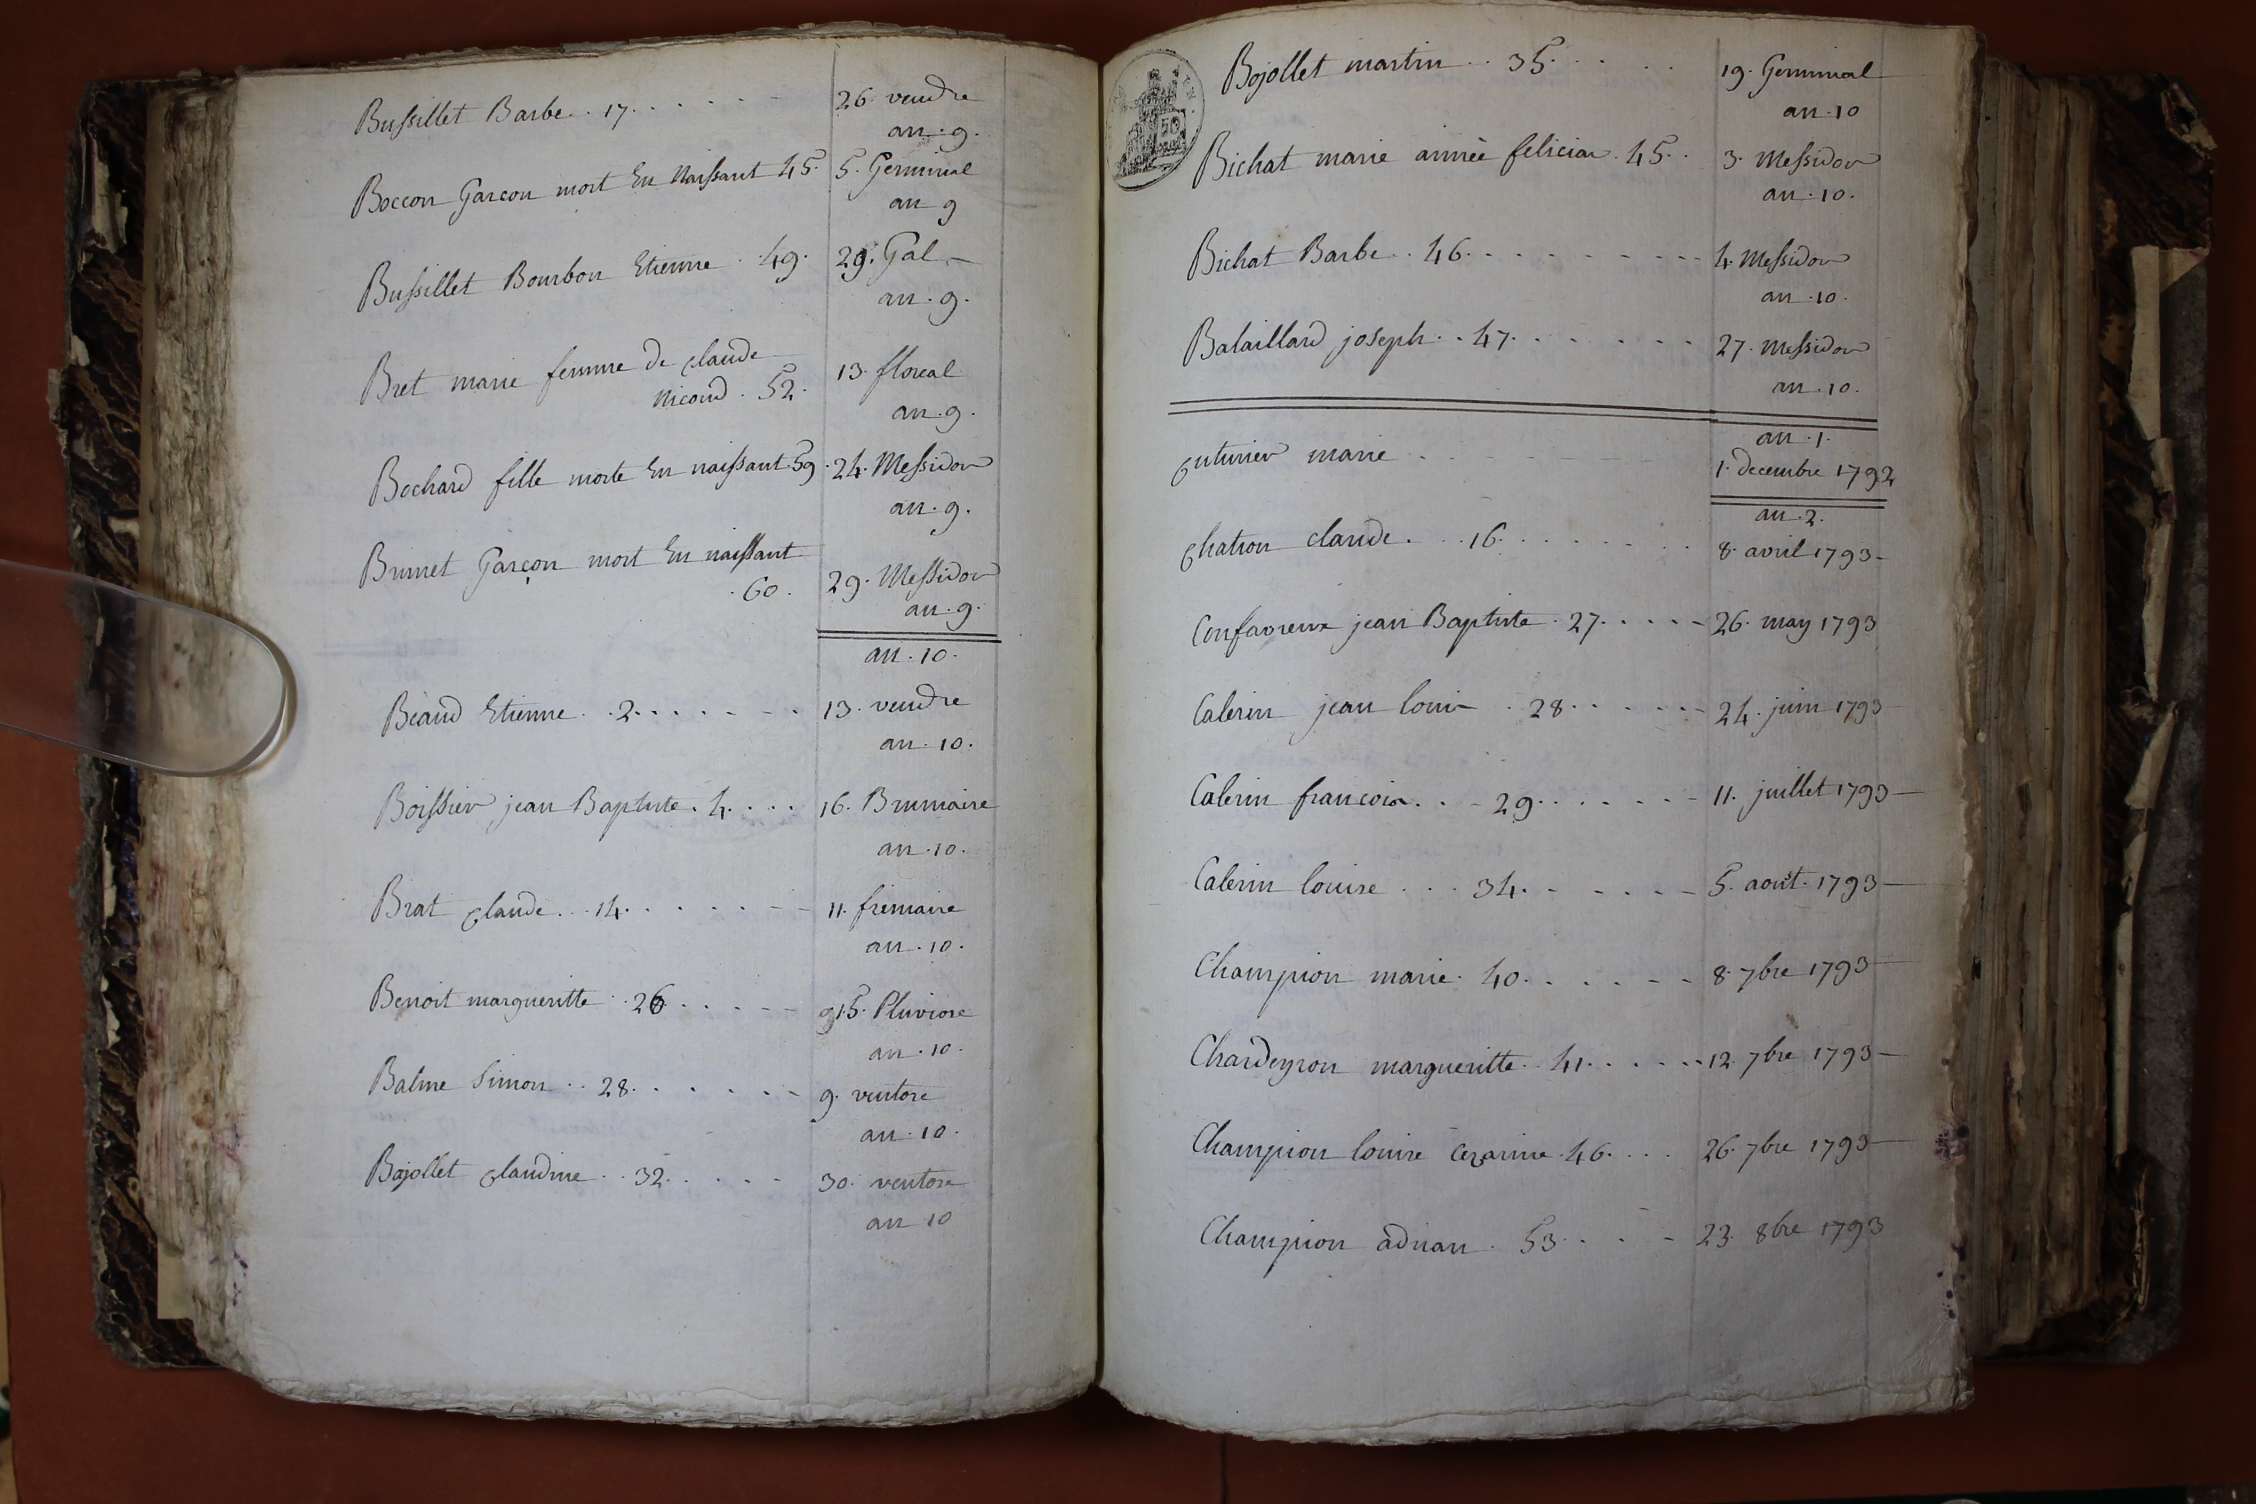 Bussillet Barbe . 17 . . . . . . 26. vendre
an . 9 .
Boccon Garcon mort En Naissant 45. 5. Germinal
an 9
Bussillet Bourbon Etienne . 49. 29. Gal
an . 9 .
Bret marie femme de claude
Nicoud . 52 . 13. floreal
an . 9 .
Bochard fille morte En naissant 59 . 24. Messidor
an . 9 .
Brunet Garçon mort En naissant
. 60 . 29. Messidor
an . 9 .
an . 10 .
Béaud Etienne . . 2 . . . . . . . 13. vendre
an . 10 .
Boissier jean Baptiste . 4 . . . . 16. Brumaire
an . 10 .
Brat claude . . 14 . . . . . . 11. frimaire
an . 10 .
Benoit margueritte . . 26 . . . . . 15. Pluviose
an . 10 .
Balme Simon . . 28 . . . . . . 9. ventose
an . 10 .
Bojollet claudine . . 32 . . . . . 30. ventose
an 10
50
Bojollet martin . . 35 . . . . . 19. Germinal
an . 10
Bichat marie aimée 45 . . 3. Messidor
an . 10 .
Bichat Barbe . 46 . . . . . . . . . 4. Messidor
an . 10 .
Balaillard joseph . . 47 . . . . . . . 27. Messidor
an . 10 .
an . 1 .
Cuturier marie . . . . . . . 1. decembre 1792
an . 2 .
Chatron claude . . . 16 . . . . . . . 8. avril 1793
Confavreux jean Baptiste . 27 . . . . . 26. may 1793
Calerin jean louis . 28 . . . . . . 24. juin 1793
Calerin francois . . . 29 . . . . . . . 11. juillet 1793
Calerin louise . . . 34 . . . . . . 5. aout . 1793
Champion marie . 40 . . . . . . 8. 7bre 1793
Chardeyron margueritte . . 41 . . . . . . 12. 7bre 1793
Champion louise Cezarine . 46 . . . 26. 7bre 1793
Champion adrian . 53 . . . . 23. 8bre 1793